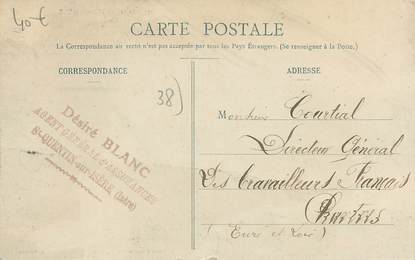 40€
CARTE POSTALE
La Correspondance au recto n'est pas acceptée par tous les Pays Étrangers. (Se renseigner à la Poste.)
CORRESPONDANCE
ADRESSE
38)
Désiré BLANC
AGENT GÉNÉRAL d'ASSURANCES
St-QUENTIN-sur-ISÈRE (Isère)
Monsieur Courtial
Directeur Général
Des Travailleurs Français
Chartres
(Eure et Loir)